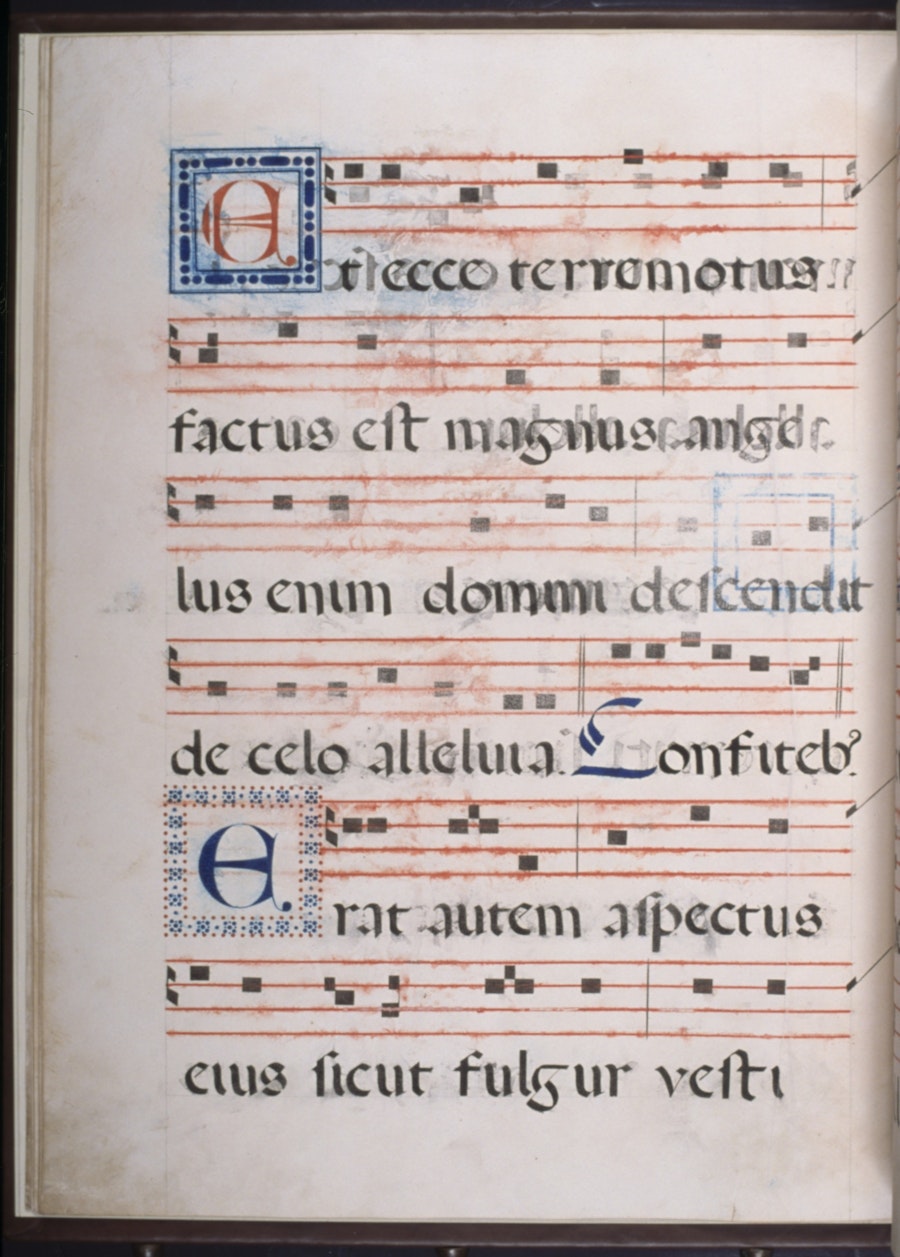 Et ecce terremotus
factus est magnus ange
lus enim domini descendit
de celo alleluia. Confiteb⁹.
Erat autem aspectus
eius sicut fulgur vesti